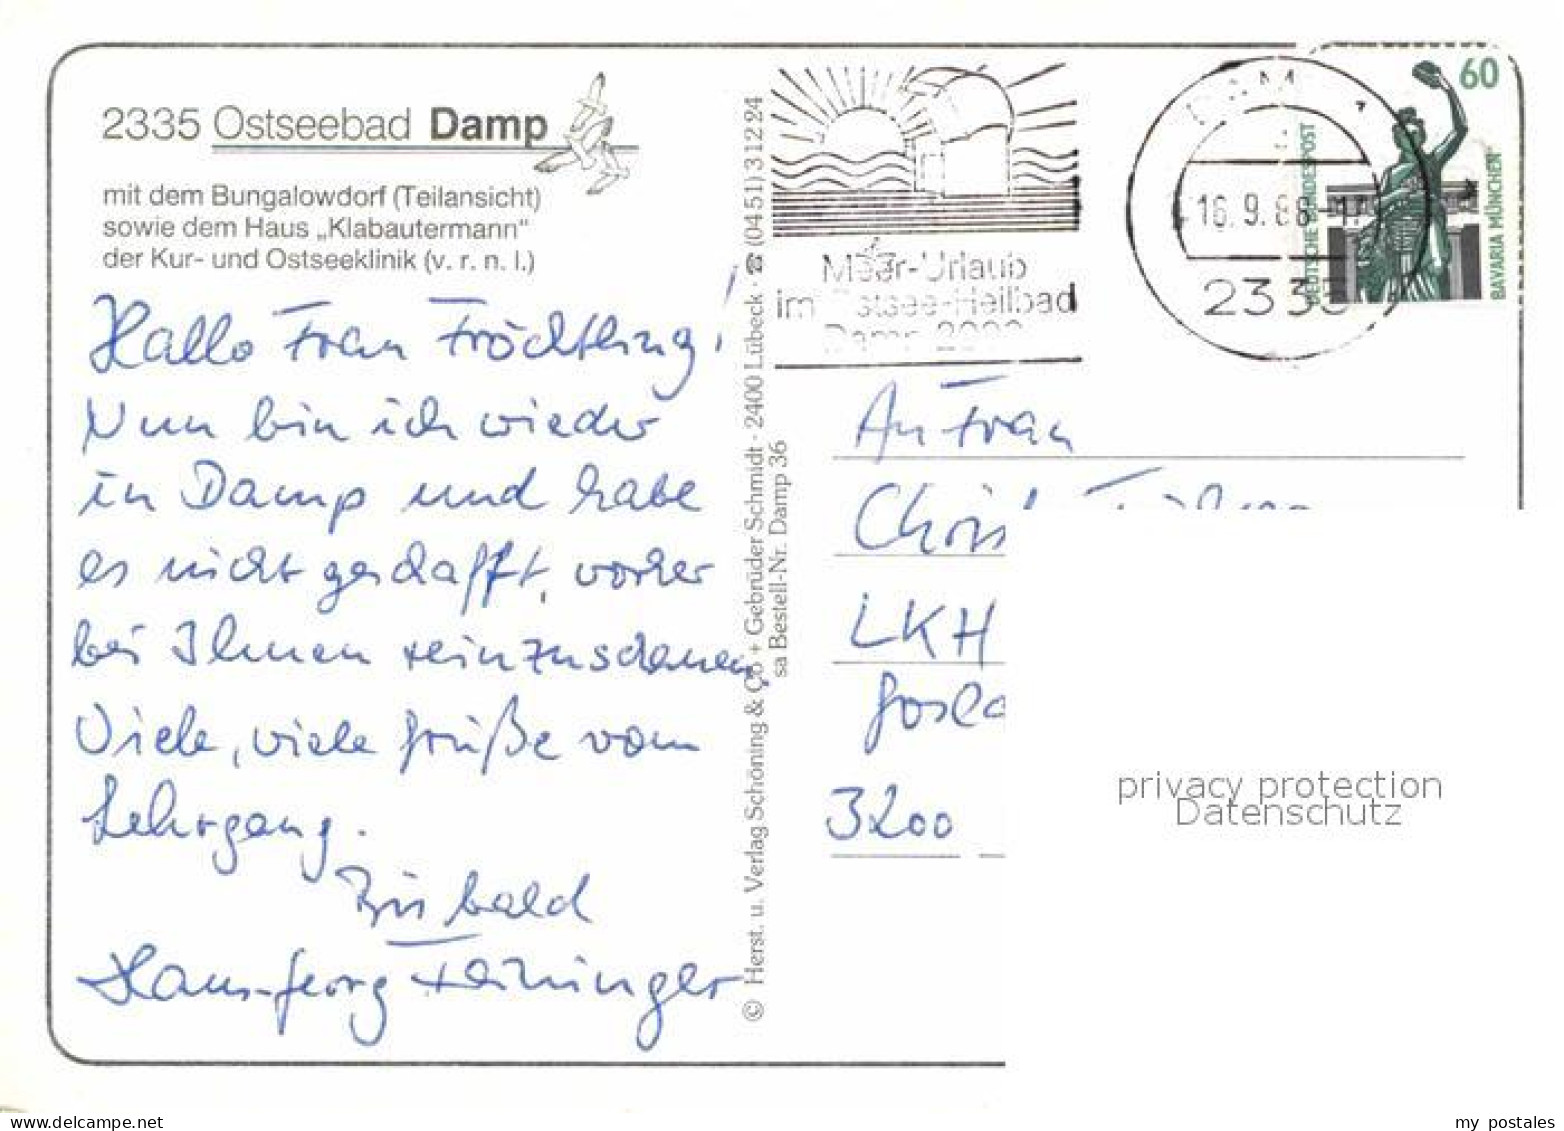 2335 Ostseebad Damp
mit dem Bungalowdorf (Teilansicht)
sowie dem Haus „Klabautermann"
der Kur- und Ostseeklinik (v. r. n. l.)
Hallo Frau Fröchtling!
Nun bin ich wieder
in Damp und habe
es nicht geschafft, vorher
bei Ihnen reinzuschauen,
Viele, viele Grüße vom
Lehrgang.
Bis bald
Hans-Georg
© Herst. u. Verlag Schöning & Co + Gebrüder Schmidt · 2400 Lübeck · ☎ (0451) 31224
sa Bestell-Nr. Damp 36
Meer-Urlaub
im Ostsee-Heilbad
Damp 2000
16.9.88-17
2335
60
DEUTSCHE BUNDESPOST
BAVARIA MÜNCHEN
An Frau
LKH
3200
privacy protection
Datenschutz
my postales